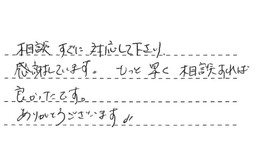 相談 すぐに 対応して下さり
感謝しています。 もっと 早く 相談すれば
良かったです。
ありがとうございます!!